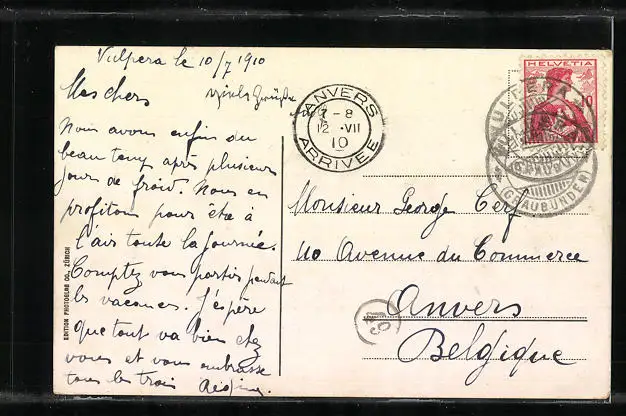 Vulpera le 10/7 1910
Mes chers
Nous avons enfin du
beau temps après plusieurs
jours de froid. Nous en
profitons pour être à
l'air toute la journée.
Comptez vous partir pendant
les vacances. J'espère
que tout va bien chez
vous et vous embrasse
tous les trois
EDITION PHOTOGLOB CO., ZÜRICH
ANVERS
7 - 8
12 - VII
10
ARRIVÉE
HELVETIA
10
VULPERA
(GRAUBÜNDEN)
Monsieur George Cerf
40 Avenue du Commerce
Anvers
Belgique